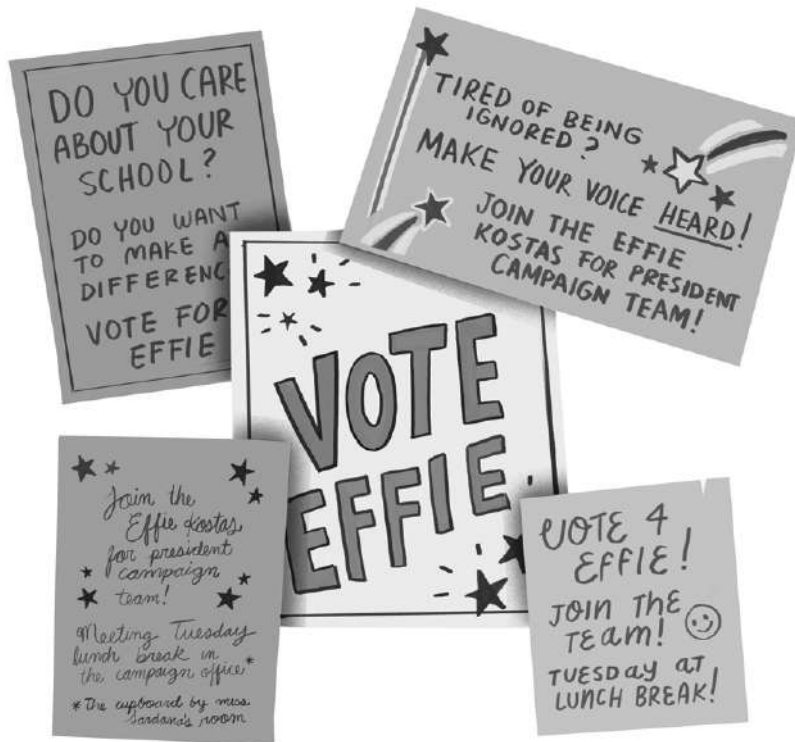 DO YOU CARE
ABOUT YOUR
SCHOOL?
DO YOU WANT
TO MAKE A
DIFFERENC
VOTE FOR
EFFIE
TIRED OF BEING
IGNORED?
MAKE YOUR VOICE HEARD!
JOIN THE EFFIE
KOSTAS FOR PRESIDENT
CAMPAIGN TEAM!
VOTE
EFFIE
Join the
Effie Kostas
for president
campaign
team!
Meeting Tuesday
lunch break in
the campaign office*
* The cupboard by miss
Sardana's room
VOTE 4
EFFIE!
JOIN THE
TEAM!
TUESDAY AT
LUNCH BREAK!